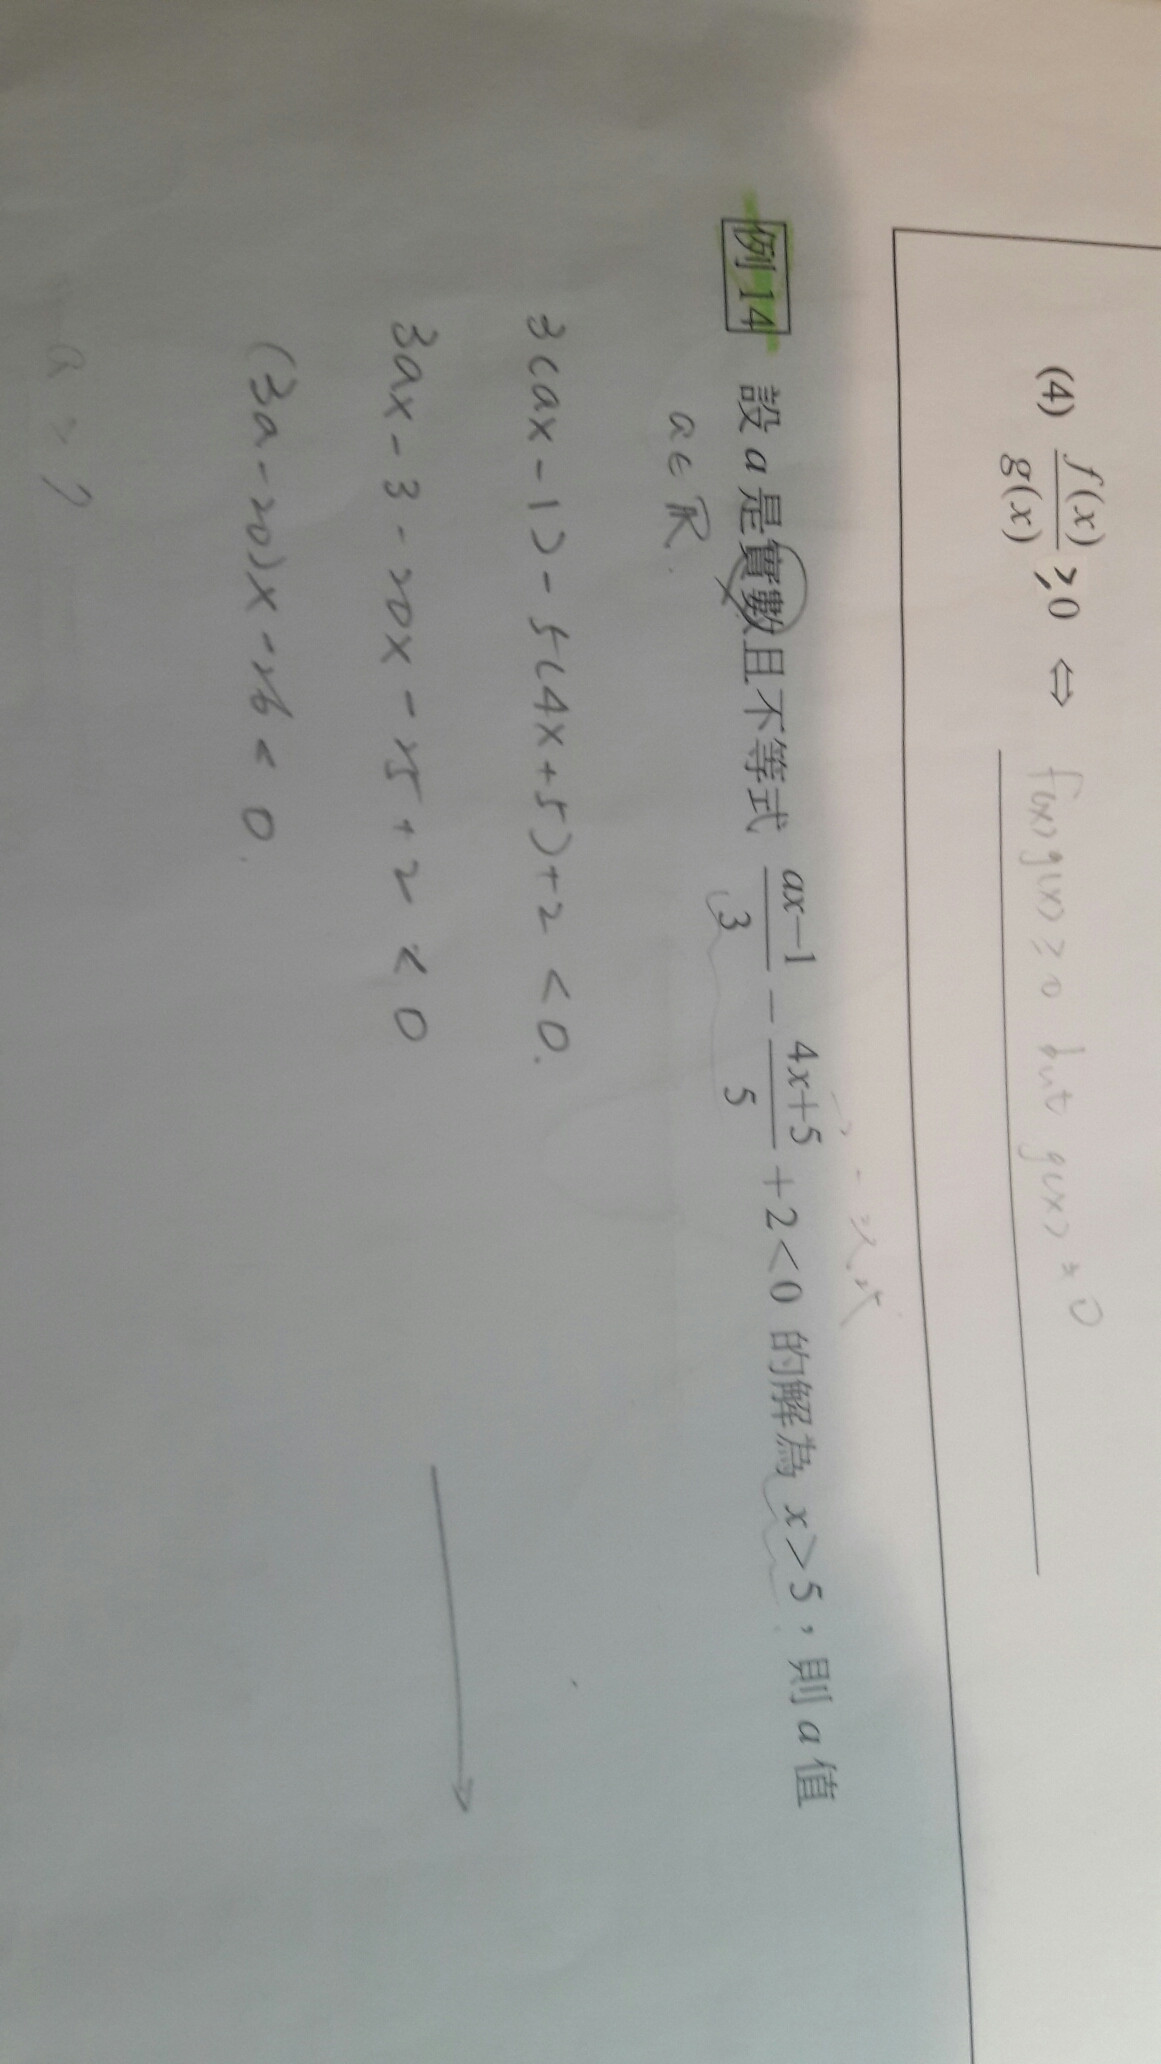 (4) f(x)/g(x) ≥ 0 ⇔ f(x)g(x) ≥ 0 but g(x) ≠ 0
一次式
例14 設 a 是實數且不等式 (ax−1)/3 − (4x+5)/5 + 2 < 0 的解為 x > 5，則 a 值
a∈ℝ.
3(ax-1) - 5(4x+5)+2 < 0.
3ax - 3 - 20x - 25 + 2 < 0
(3a-20)x - 26 < 0.
a > ?